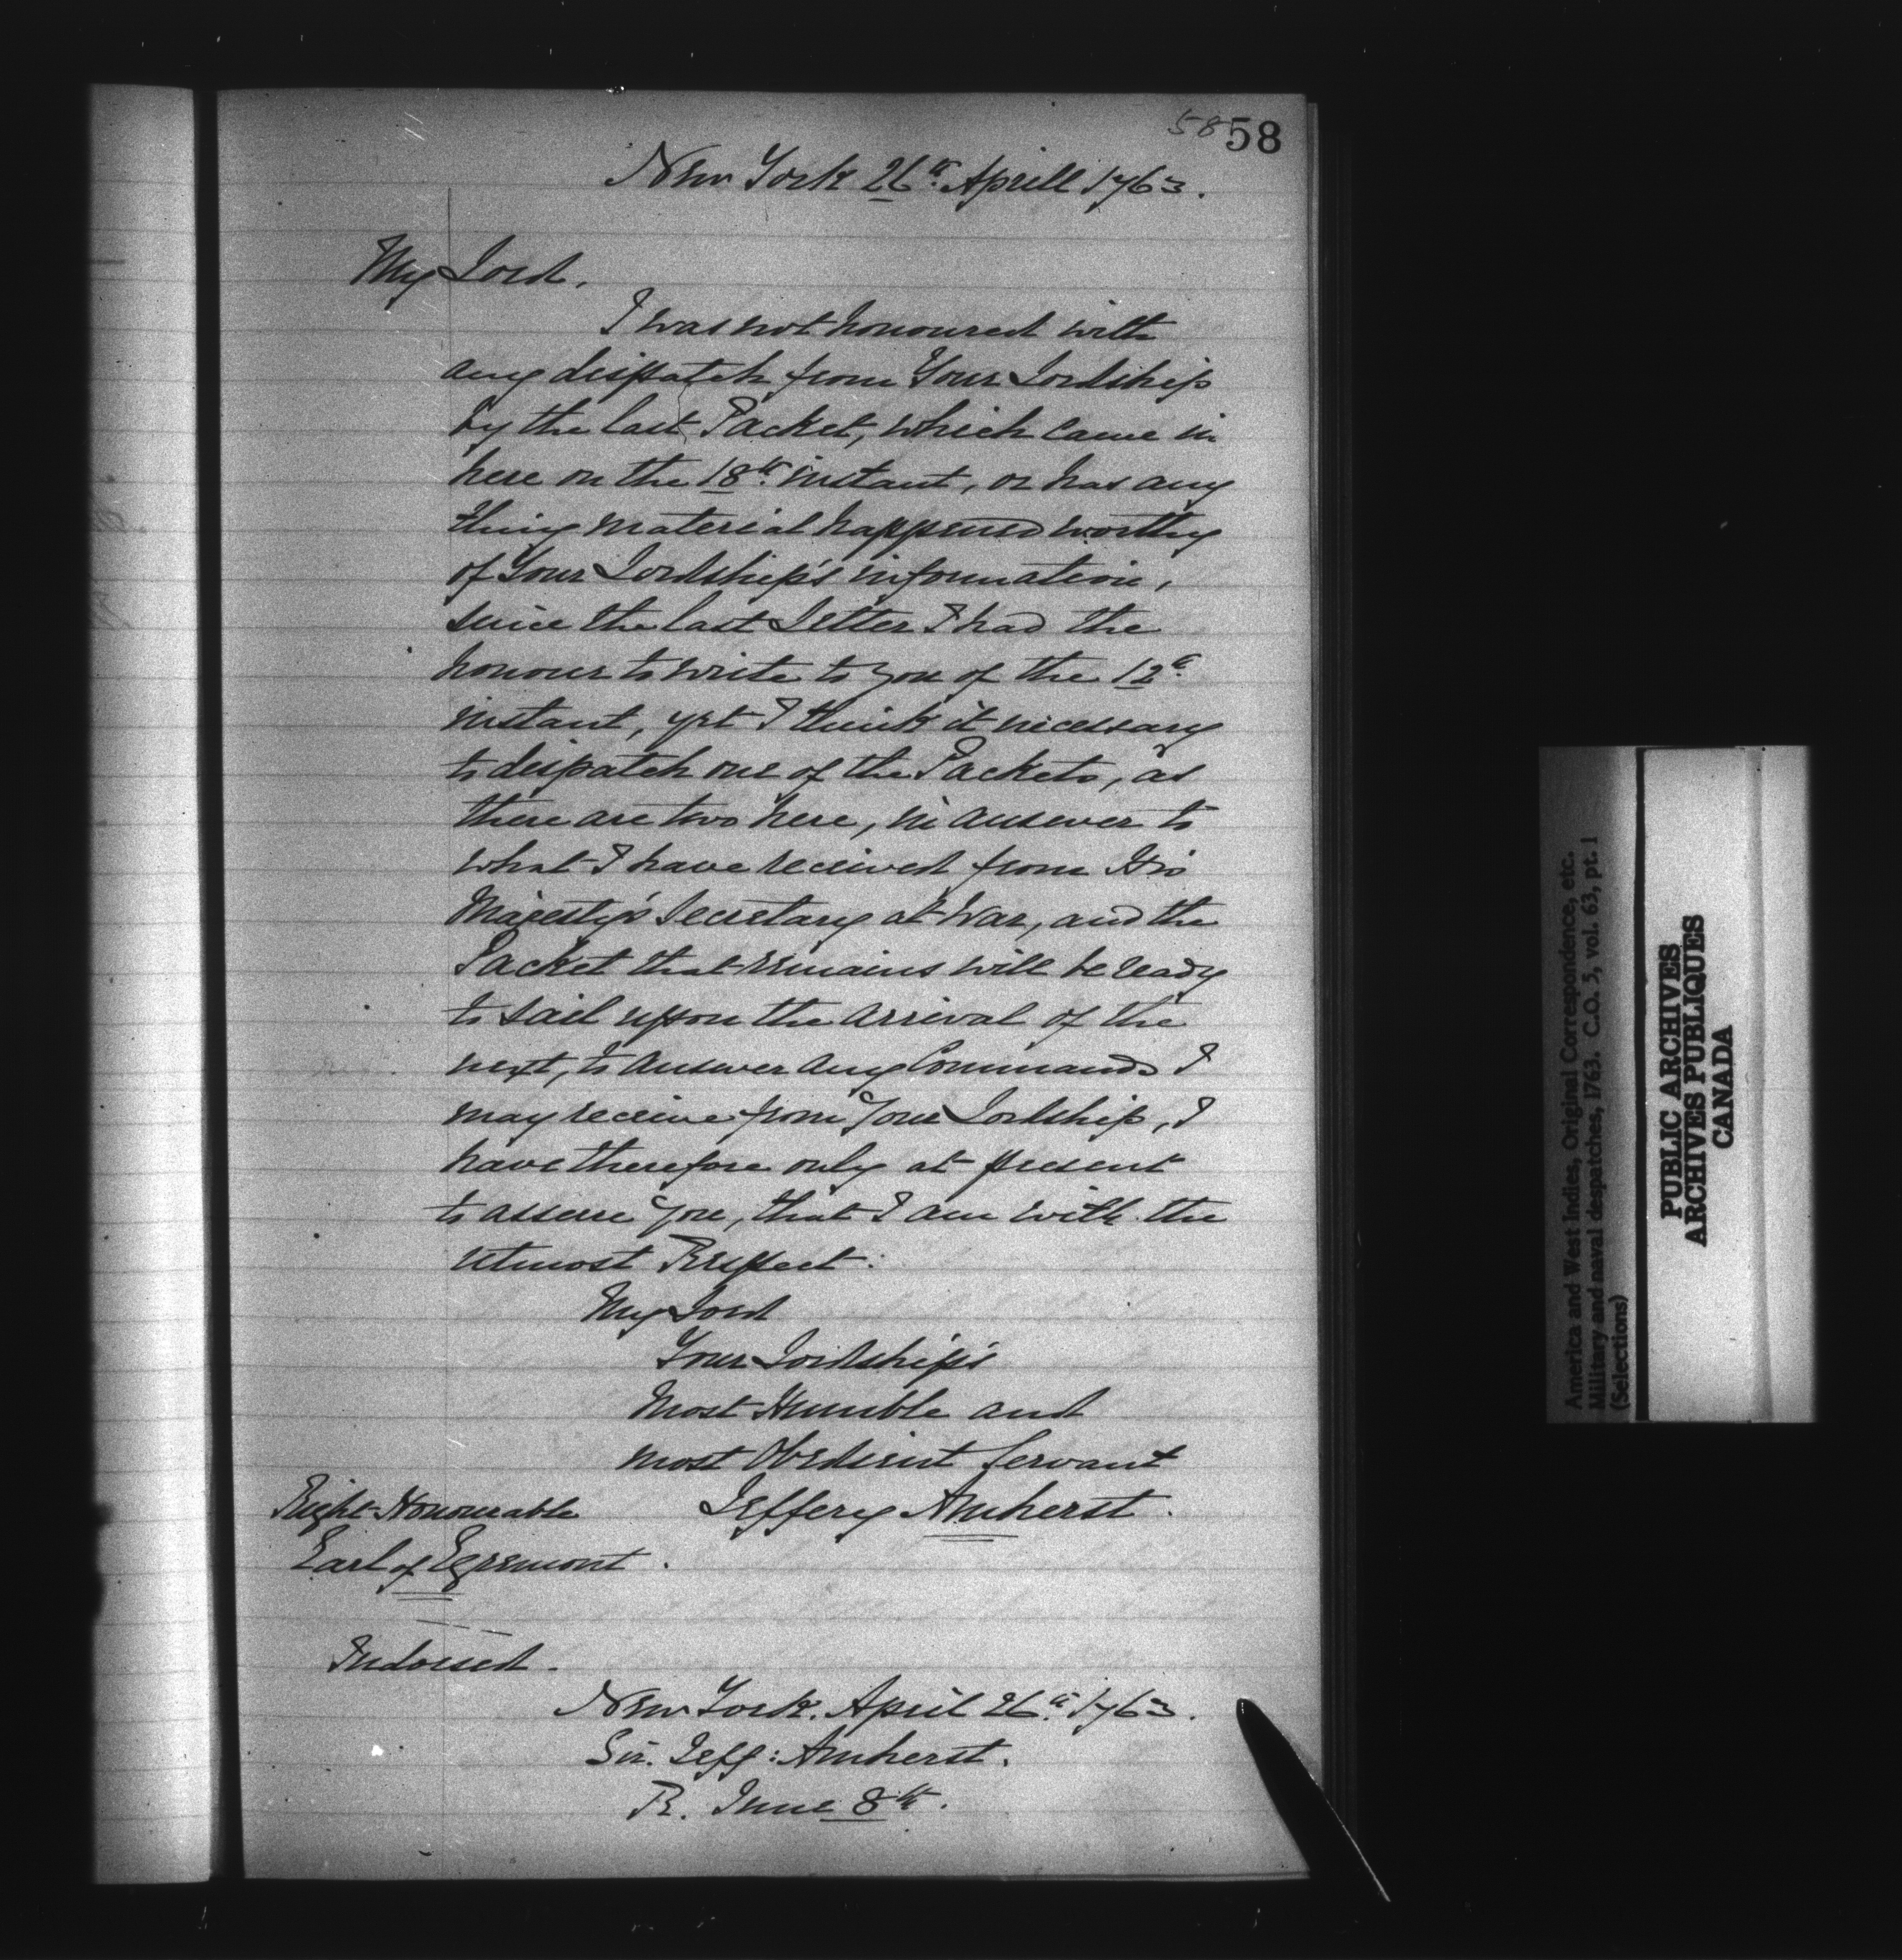 58 58
New York 26th. Aprill 1763.
My Lord.
I was not honoured with
any dispatch from Your Lordship
by the last Packet, which came in
here on the 18th. instant, or has any
thing material happened worthy
of Your Lordship's information,
since the last Letter I had the
honour to write to you of the 12th.
instant, yet I think it necessary
to dispatch one of the Packets, as
there are two here, in answer to
what I have received from His
Majesty's Secretary at War, and the
Packet that remains will be ready
to sail upon the arrival of the
next, to answer any Commands I
may receive from Your Lordship, I
have therefore only at present
to assure you, that I am with the
utmost Respect.
My Lord
Your Lordship's
Most Humble and
most Obedient Servant
Jeffery Amherst.
Right Honourable
Earl of Egremont.
Indorsed.
New York. April 26th. 1763.
Sir. Jeff: Amherst.
R. June 8th.
America and West Indies, Original Correspondence, etc.
Military and naval despatches, 1763. C.O. 5, vol. 63, pt. 1
(Selections)
PUBLIC ARCHIVES
ARCHIVES PUBLIQUES
CANADA